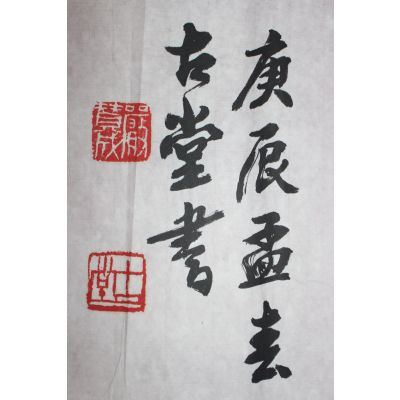 庚辰孟春
古堂書